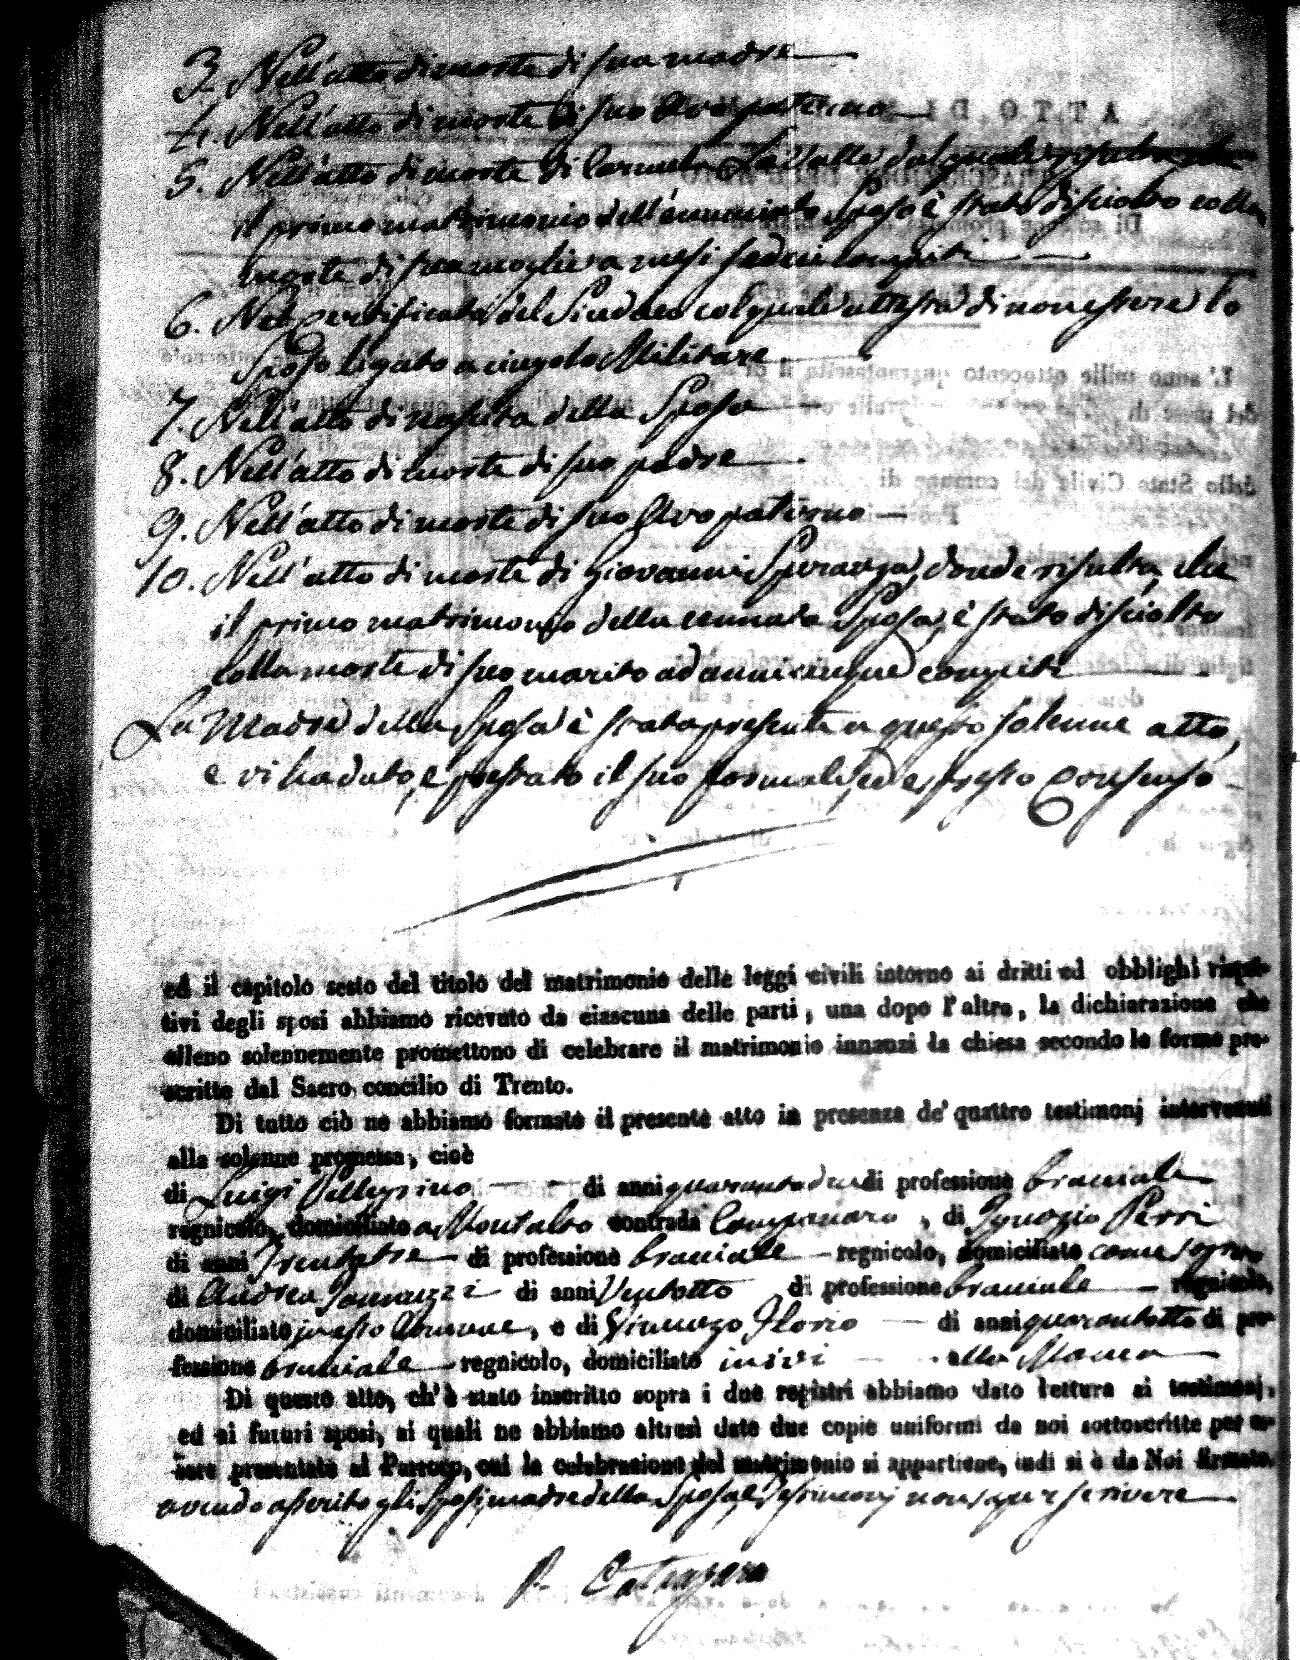 3. Nell'atto di morte di sua madre
4. Nell'atto di morte di suo Avo paterno
5. Nell'atto di morte di Carmela La Valle dal quale risulta che
il primo matrimonio dell'enunciato Sposo è stato disciolto colla
morte di sua moglie a mesi sedici compiti
6. Nel certificato del Sindaco col quale attesta di non essere lo
Sposo ligato a cingolo Militare
7. Nell'atto di nascita della Sposa
8. Nell'atto di morte di suo padre
9. Nell'atto di morte di suo Avo paterno
10. Nell'atto di morte di Giovanni Speranza, donde risulta, che
il primo matrimonio della cennata Sposa, è stato disciolto
colla morte di suo marito ad anni cinque compiti
La Madre della Sposa è stata presente a questo solenne atto,
e vi ha dato, e prestato il suo formale, ed espresso Consenso
ed il capitolo sesto del titolo del matrimonio delle leggi civili intorno ai dritti ed obblighi rispet-
tivi degli sposi abbiamo ricevuto da ciascuna delle parti, una dopo l'altra, la dichiarazione che
elleno solennemente promettono di celebrare il matrimonio innanzi la chiesa secondo le forme pre-
scritte dal Sacro concilio di Trento.
Di tutto ciò ne abbiamo formato il presente atto in presenza de' quattro testimonj intervenuti
alla solenne promessa, cioè
di Luigi Pellegrino di anni quarantadue di professione bracciale
regnicolo, domiciliato a Montalto contrada Companaro, di Ignazio Perri
di anni Trentatre di professione bracciale regnicolo, domiciliato come sopra
di Andrea Iannuzzi di anni Ventotto di professione bracciale regnicolo,
domiciliato in esso Comune, e di Vincenzo Florio di anni quarantotto di pro-
fessione bracciale regnicolo, domiciliato ivi alla Manca
Di questo atto, ch'è stato inscritto sopra i due registri abbiamo dato lettura ai testimonj,
ed ai futuri sposi, ai quali ne abbiamo altresì date due copie uniformi da noi sottoscritte per es-
sere presentate al Parroco, cui la celebrazione del matrimonio si appartiene, indi si è da Noi firmato,
avendo asserito gli Sposi, madre della Sposa, e Testimonj non saper scrivere